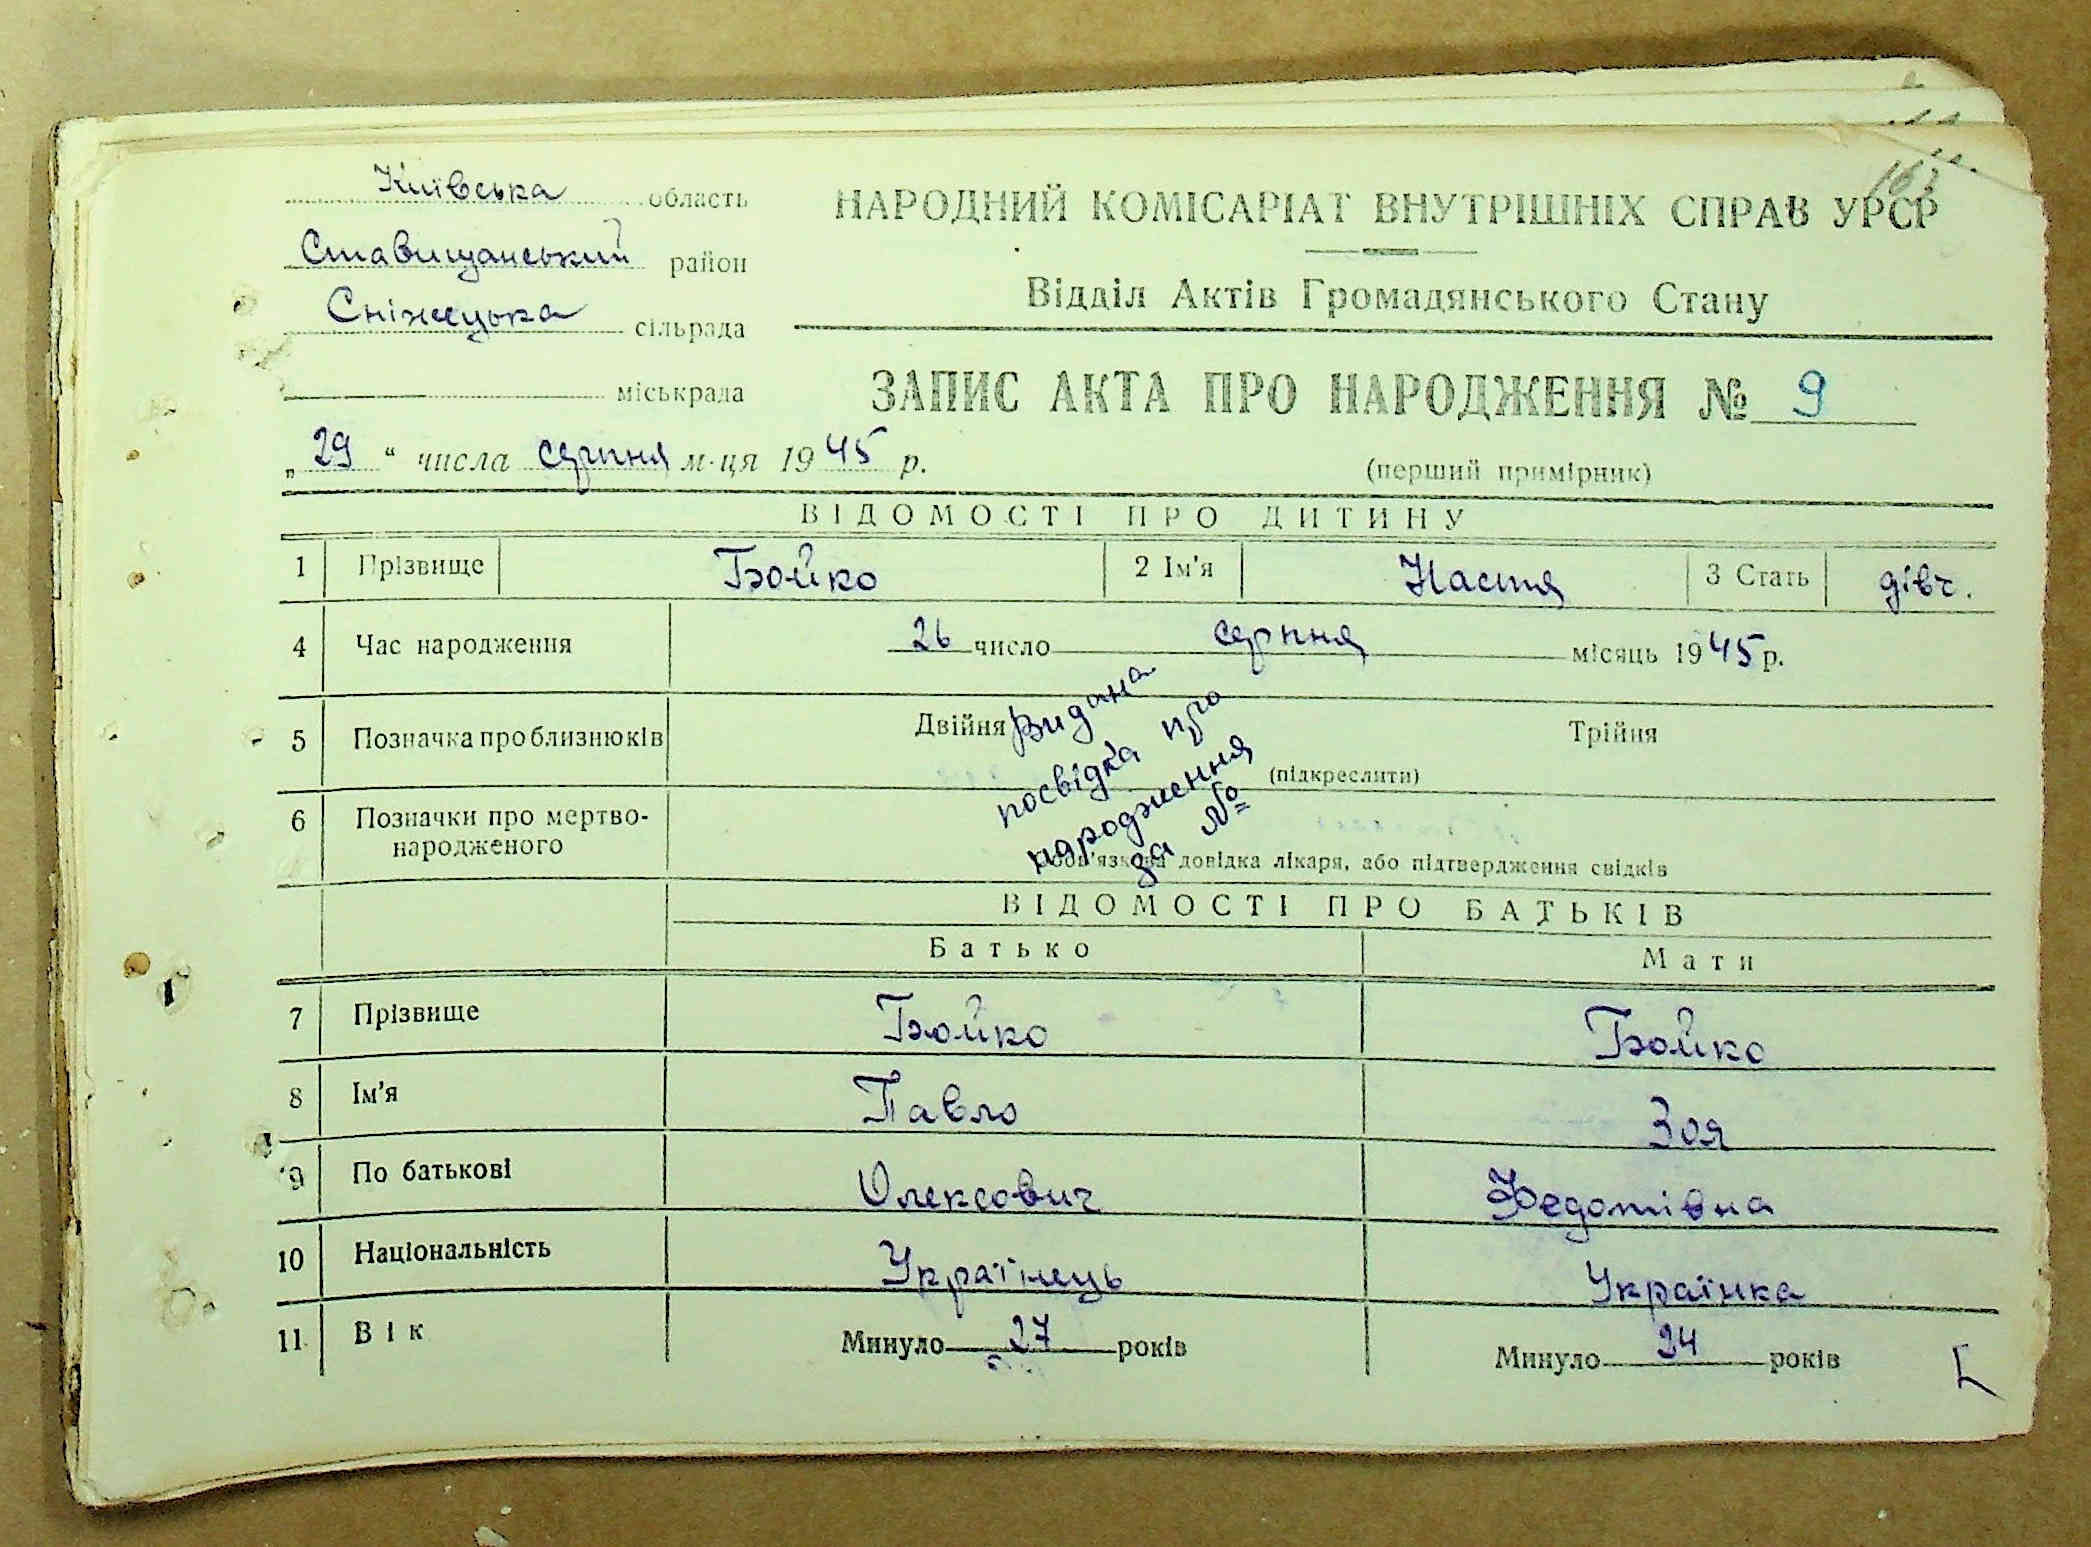 163
Київська область
Ставищанський район
Сніжецька сільрада
міськрада
НАРОДНИЙ КОМІСАРІАТ ВНУТРІШНІХ СПРАВ УРСР
Відділ Актів Громадянського Стану
ЗАПИС АКТА ПРО НАРОДЖЕННЯ № 9
„29“ числа серпня м-ця 1945 р.
(перший примірник)
ВІДОМОСТІ ПРО ДИТИНУ
1 Прізвище Бойко 2 Ім'я Настя 3 Стать дівч.
4 Час народження 26 число серпня місяць 1945 р.
5 Позначка про близнюків Двійня Трійня
(підкреслити)
Видана
посвідка про
народження
за №
6 Позначки про мертво-
народженого
довідка лікаря, або підтвердження свідків
ВІДОМОСТІ ПРО БАТЬКІВ
Батько Мати
7 Прізвище Бойко Бойко
8 Ім'я Павло Зоя
9 По батькові Олексович Федотівна
10 Національність Українець Українка
11 Вік Минуло 27 років Минуло 24 років